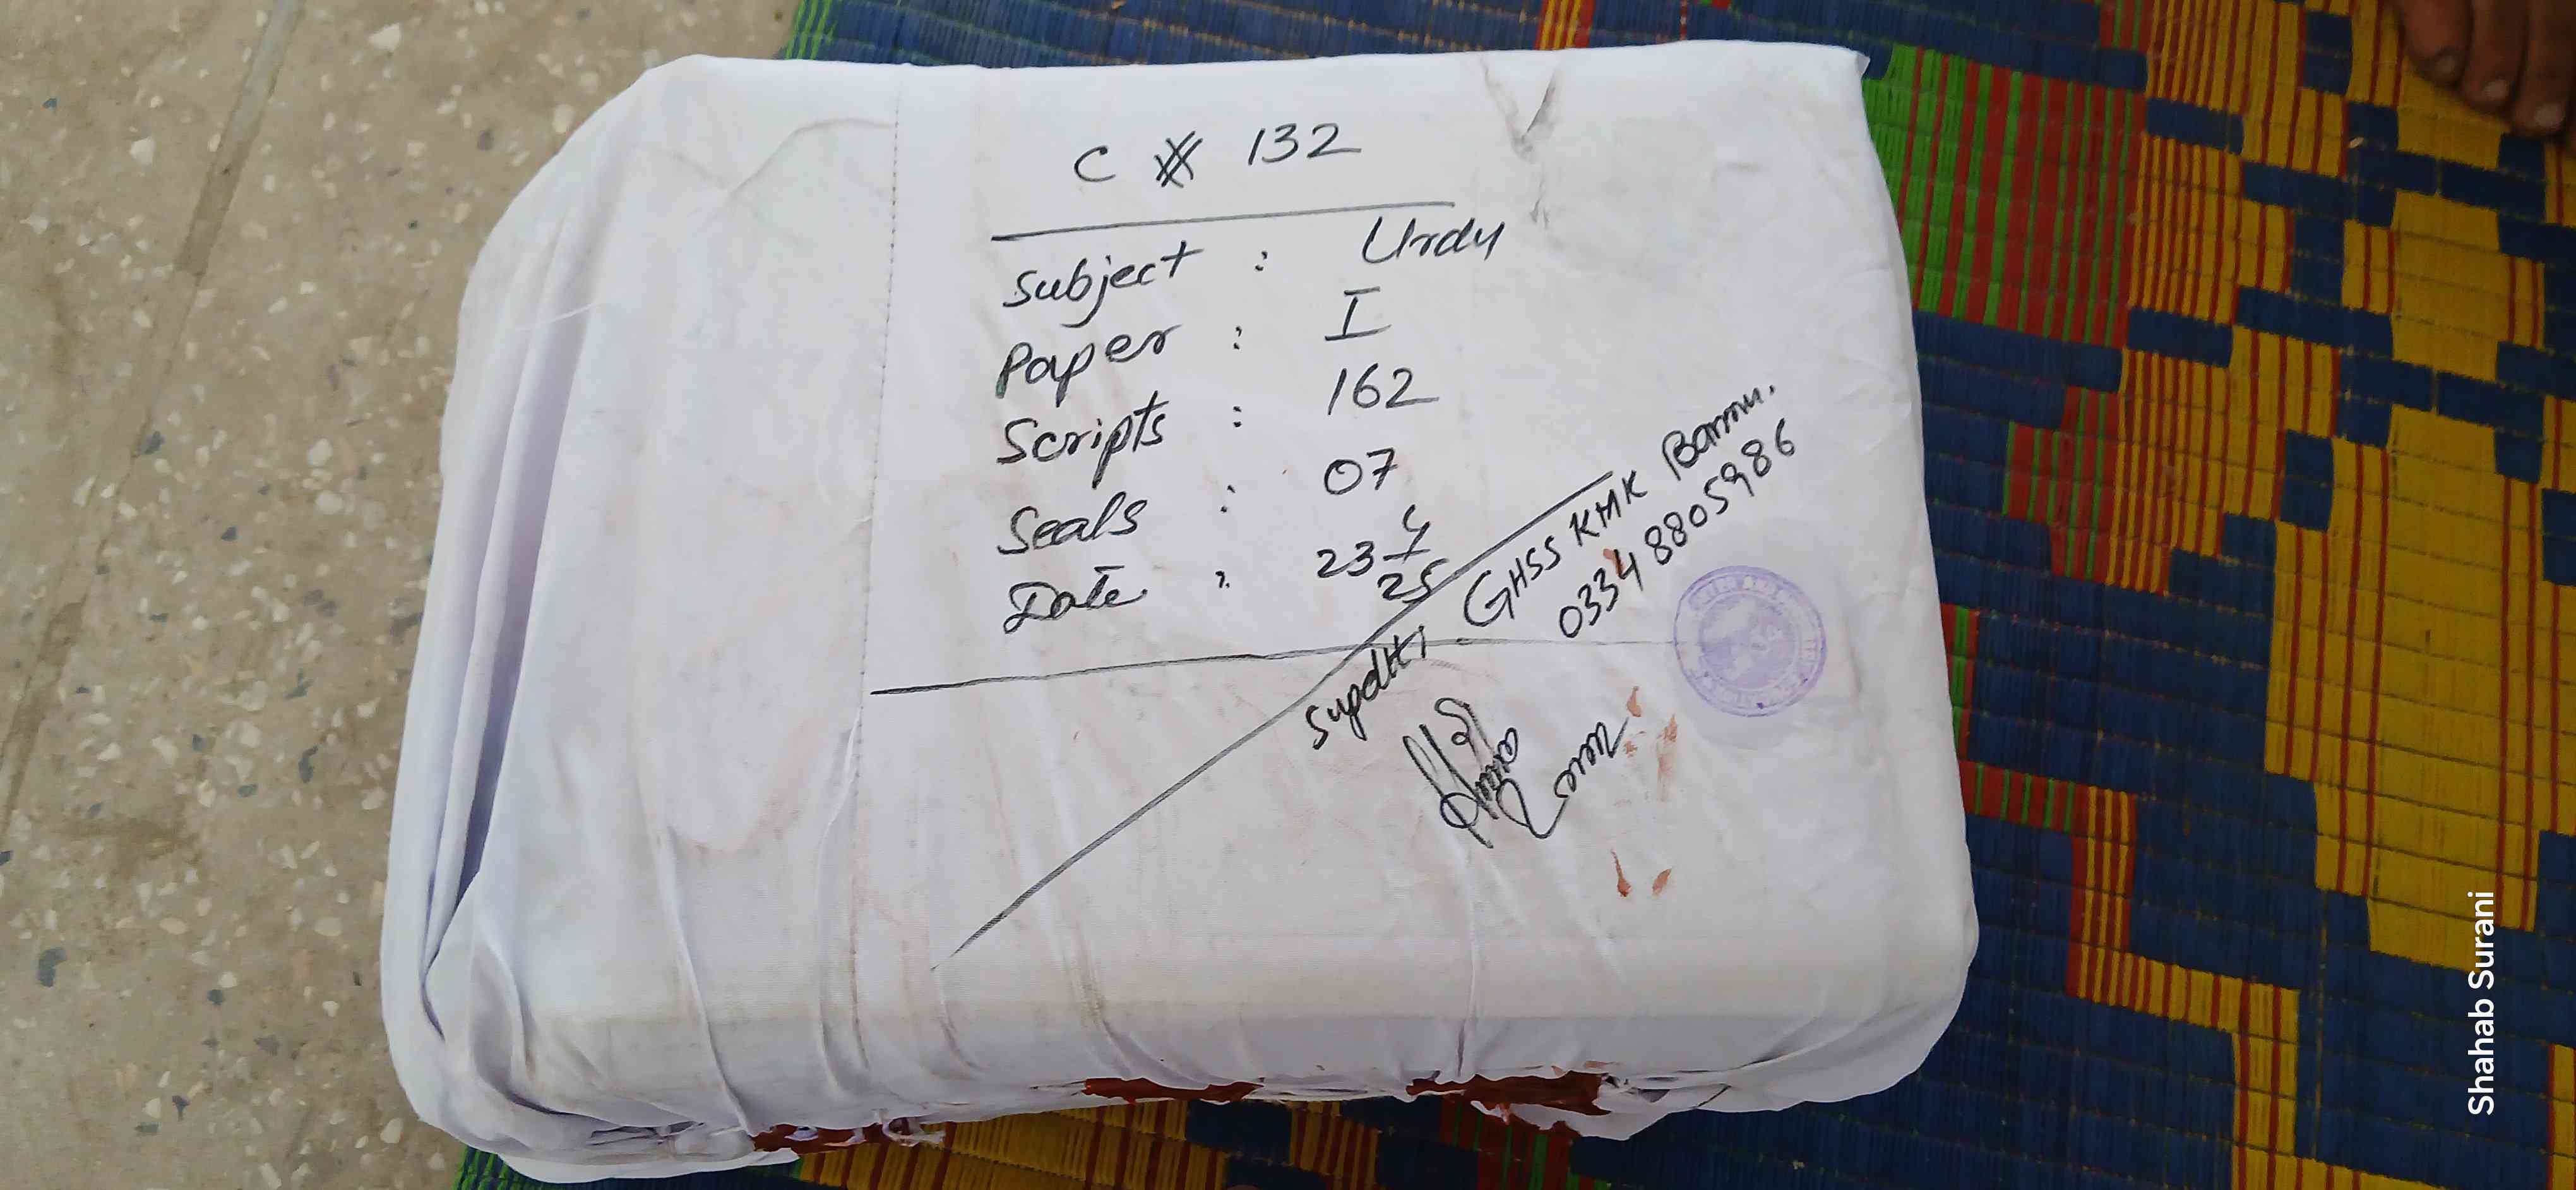 C # 132
Subject : Urdu
Paper : I
Scripts : 162
Seals : 07
Date : 23 4 25
Supdtt: GHSS KMK Bannu.
0334 8805986
Shahab Surani